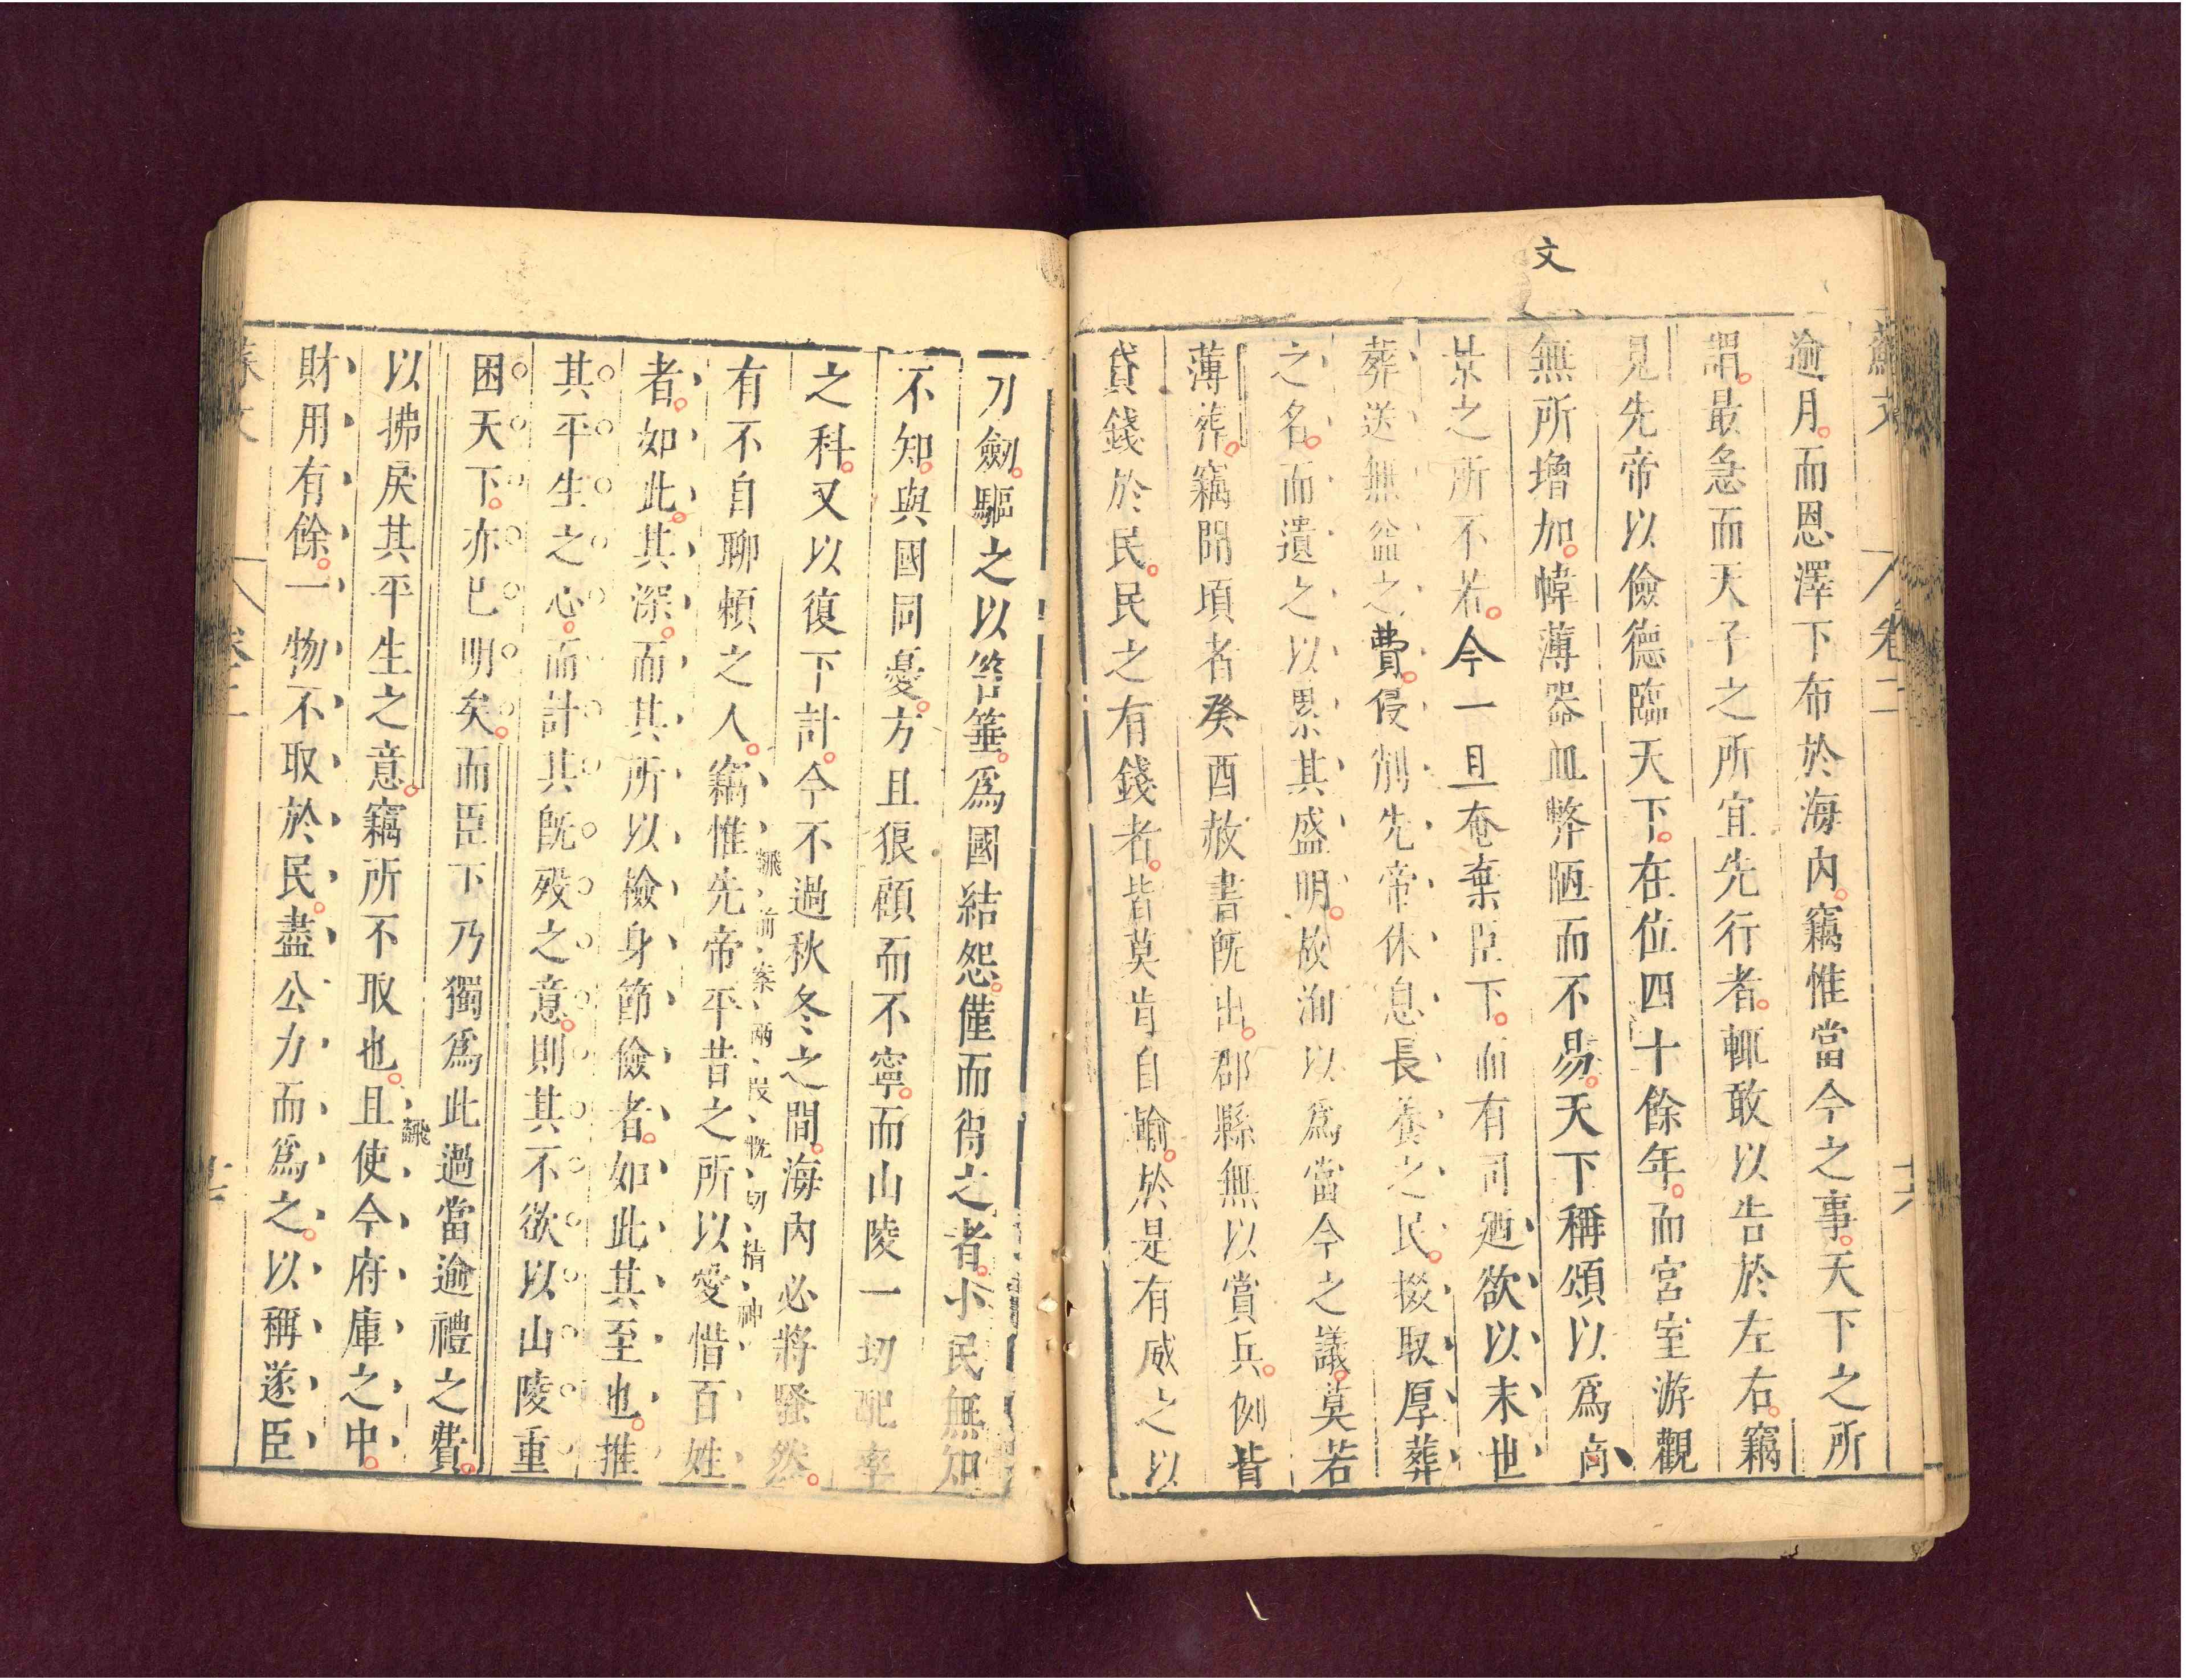 文
蘇文
卷二
十六
逾月而恩澤下布於海內竊惟當今之事天下之所
謂最急而天子之所宜先行者輒敢以告於左右竊
見先帝以儉德臨天下在位四十餘年而宮室游觀
無所增加幃薄器皿弊陋而不易天下稱頌以爲
之所不若今一旦奄棄臣下而有司廼欲以末世
葬送無益之費侵削先帝休息長養之民掇取厚葬
之名而遺之以累其盛明故洵以爲當今之議莫若
薄葬竊聞頃者癸酉赦書旣出郡縣無以賞兵例皆
貸錢於民民之有錢者皆莫肯自輸於是有威之以
刀劒驅之以笞箠爲國結怨僅而得之者小民無知
不知與國同憂方且狼顧而不寧而山陵一切配率
之科又以復下計今不過秋冬之間海內必將騷然
有不自聊賴之人竊惟先帝平昔之所以愛惜百姓
飜前案兩段旣切精神
者如此其深而其所以檢身節儉者如此其至也推
其平生之心而計其旣歿之意則其不欲以山陵重
困天下亦已明矣而臣下乃獨爲此過當逾禮之費
以拂戾其平生之意竊所不取也且使今府庫之中
飜
財用有餘一物不取於民盡公力而爲之以稱遂臣
蘇文
卷二
十七